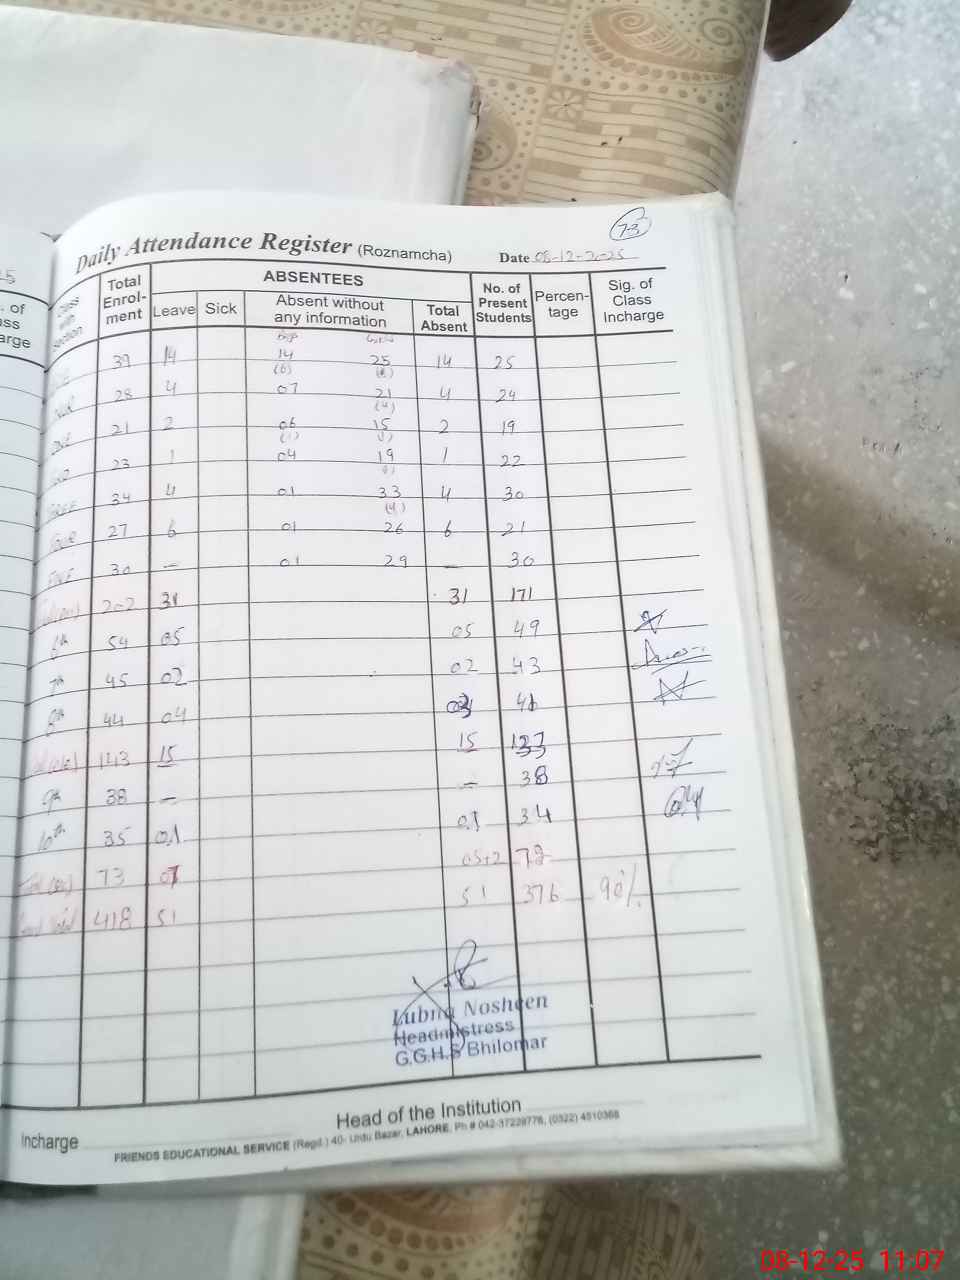 73
Daily Attendance Register (Roznamcha) Date 08-12-2025
Class with Section
Total Enrolment
ABSENTEES
Leave Sick Absent without any information Total Absent
No. of Present Students
Percentage
Sig. of Class Incharge
39 14 14 25 14 25
(6) (8)
NUR 28 4 07 21 4 24
(4)
ONE 21 2 06 15 2 19
(1) (1)
23 1 04 19 1 22
34 4 01 33 4 30
(4)
FOUR 27 6 01 26 6 21
FIVE 30 — 01 29 — 30
202 31 31 171
6th 54 05 05 49
7th 45 02 02 43
8th 44 04 41
143 15 15 133
9th 38 — — 38
10th 35 01 01 34
73 05+2 72
Grand Total 418 51 51 376 90%
Lubna Nosheen
Headmistress
G.G.H.S Bhilomar
Head of the Institution
Incharge
FRIENDS EDUCATIONAL SERVICE (Regd.) 40- Urdu Bazar, LAHORE, Ph # 042-37229778, (0322) 4510368
08-12-25 11:07